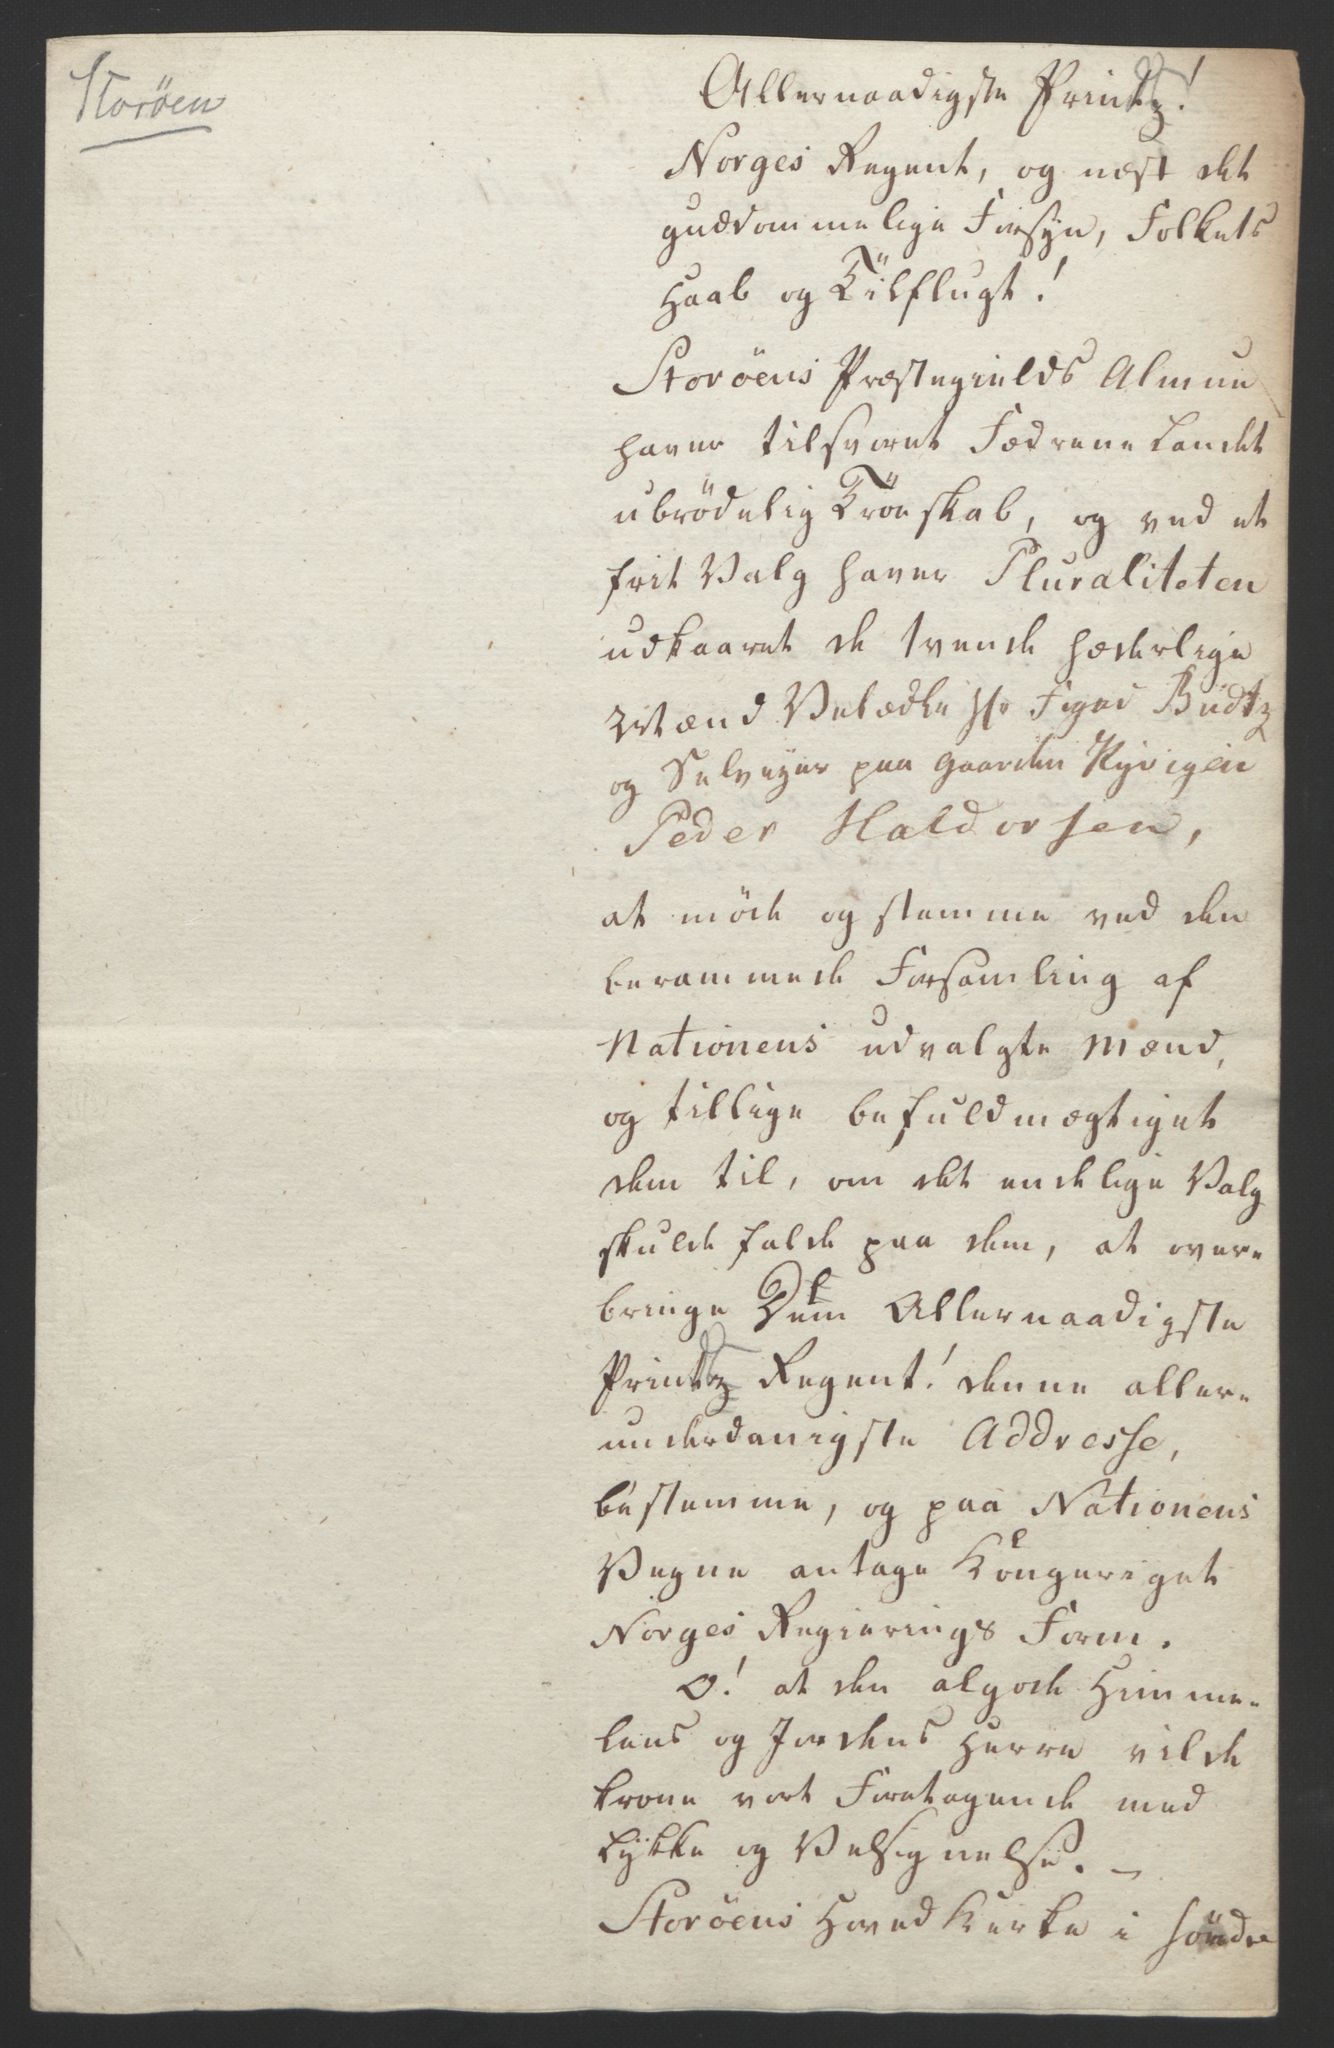 Storöen
Allernaadigste Printz!
Norges Regent, og næst det
guddommelige Forsyn, Folkets
Haab og Tilflugt!
Storöens Præstegields Almue
haver tilsvoret Fædrenelandet
ubrödelig Tröeskab, og ved et
frit Valg haver Pluraliteten
udkaaret de tvende hæderlige
Mænd Velædle Hr Budtz
og Selveyer paa Gaarden Rÿvigen
Peder Haldorsen,
at möde og stemme ved den
berammede Forsamling af
Nationens udvalgte Mænd,
og tillige befuldmægtiget
dem til, om det endelige Valg
skulde falde paa dem, at over-
bringe Dem Allernaadigste
Printz Regent! denne aller-
underdanigste Addresse,
bestemme, og paa Nationens
Vegne antage Kongeriget
Norges Regierings Form.
O! at den algode Himme-
lens og Jordens Herre vilde
krone vort Foretagende med
Lÿkke og Velsignelse. -
Storöens Hoved Kirke i söndre